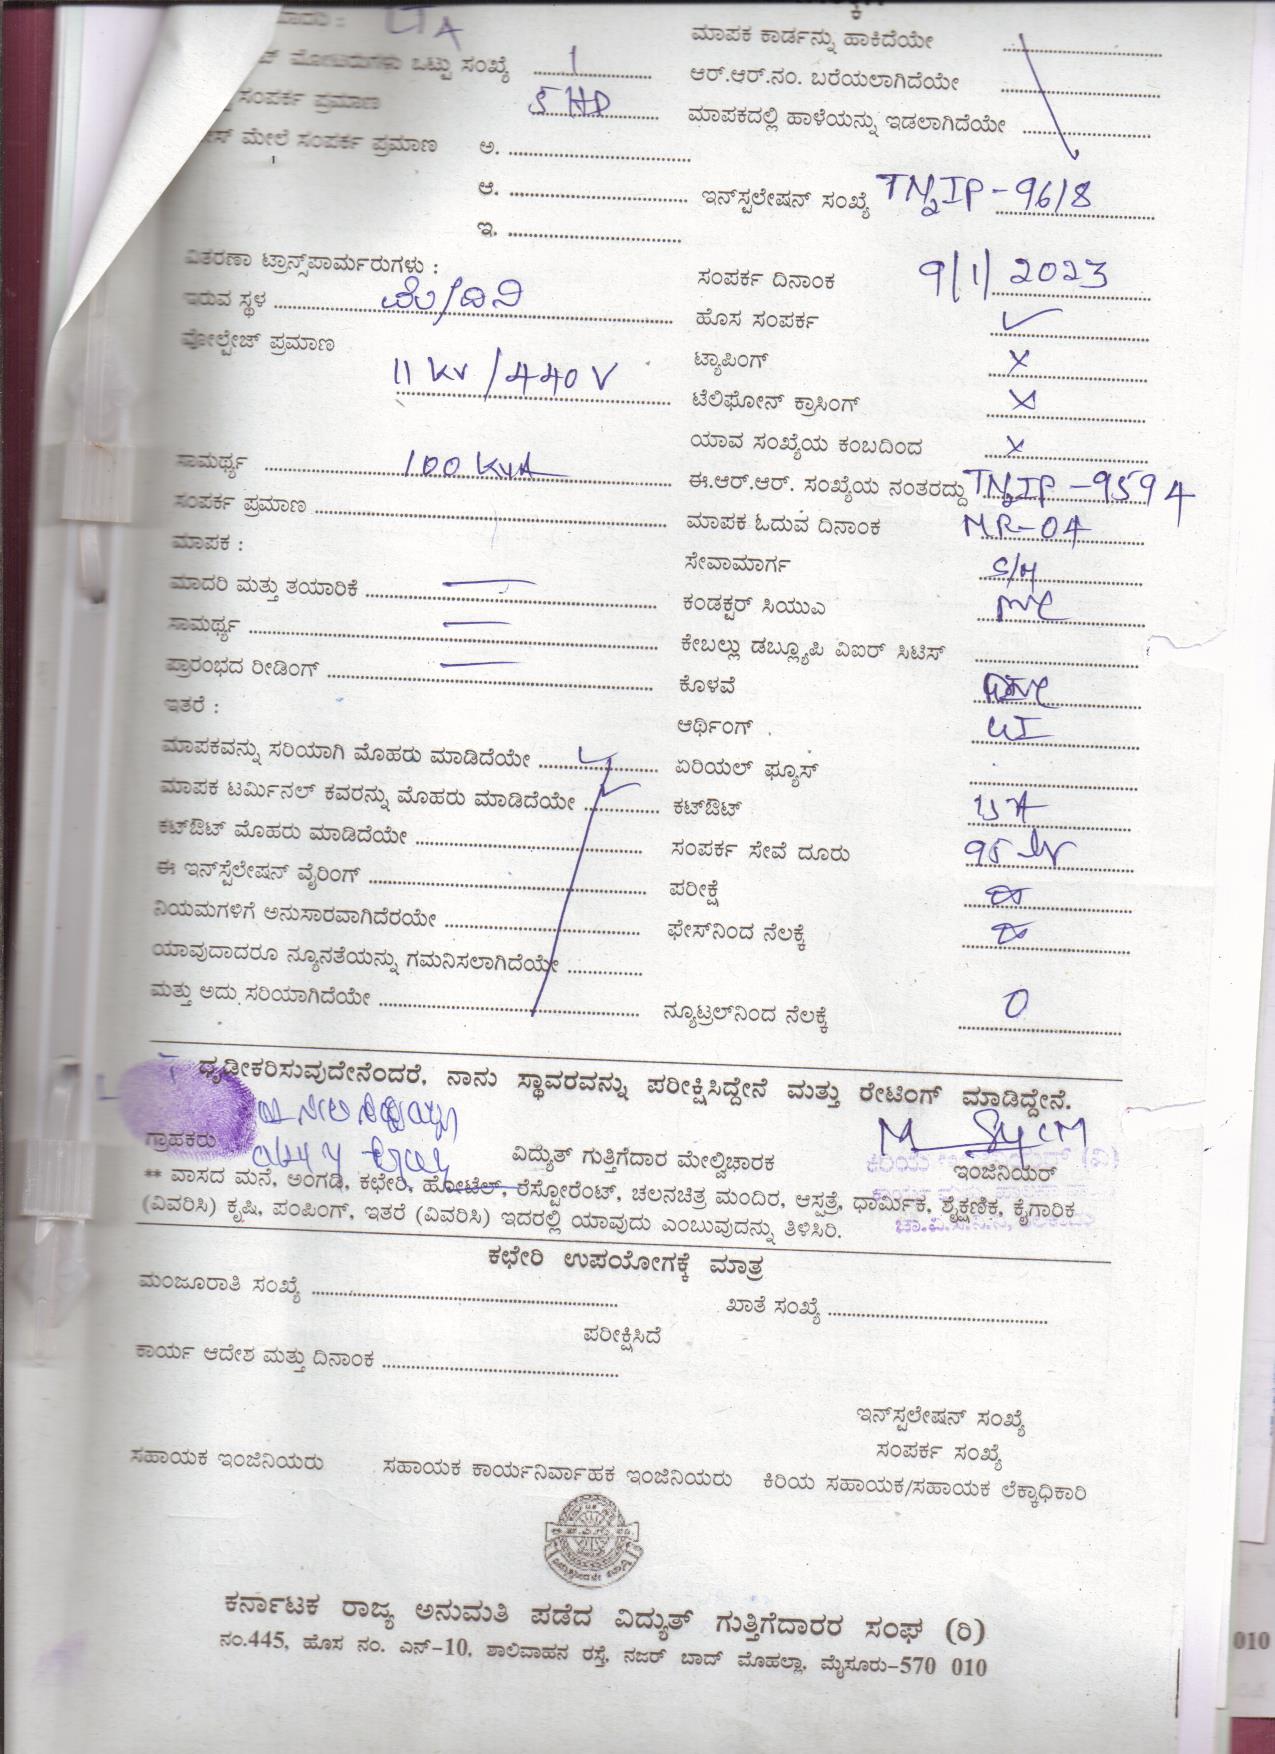 LTA
ಮಾಪಕ ಕಾರ್ಡನ್ನು ಹಾಕಿದೆಯೇ
ಮೋಟರುಗಳು ಒಟ್ಟು ಸಂಖ್ಯೆ 1
ಆರ್.ಆರ್.ನಂ. ಬರೆಯಲಾಗಿದೆಯೇ
ಸಂಪರ್ಕ ಪ್ರಮಾಣ 5 HP
ಮಾಪಕದಲ್ಲಿ ಹಾಳೆಯನ್ನು ಇಡಲಾಗಿದೆಯೇ
ಮೇಲೆ ಸಂಪರ್ಕ ಪ್ರಮಾಣ ಅ.
ಆ.
ಇನ್‌ಸ್ಪಲೇಷನ್ ಸಂಖ್ಯೆ TN2IP-9618
ಇ.
ವಿತರಣಾ ಟ್ರಾನ್ಸ್‌ಪಾರ್ಮರುಗಳು :
ಸಂಪರ್ಕ ದಿನಾಂಕ 9/1/2023
ಇರುವ ಸ್ಥಳ
ಹೊಸ ಸಂಪರ್ಕ ✓
ವೋಲ್ಟೇಜ್ ಪ್ರಮಾಣ 11 KV/440V
ಟ್ಯಾಪಿಂಗ್ ×
ಟೆಲಿಫೋನ್ ಕ್ರಾಸಿಂಗ್ ×
ಯಾವ ಸಂಖ್ಯೆಯ ಕಂಬದಿಂದ ×
ಸಾಮರ್ಥ್ಯ 100 KVA
ಈ.ಆರ್.ಆರ್. ಸಂಖ್ಯೆಯ ನಂತರದ್ದು TN2IP-9594
ಸಂಪರ್ಕ ಪ್ರಮಾಣ
ಮಾಪಕ ಓದುವ ದಿನಾಂಕ MR-04
ಮಾಪಕ :
ಸೇವಾಮಾರ್ಗ
ಮಾದರಿ ಮತ್ತು ತಯಾರಿಕೆ
ಕಂಡಕ್ಟರ್ ಸಿಯುಎ
ಸಾಮರ್ಥ್ಯ
ಕೇಬಲ್ಲು ಡಬ್ಲ್ಯೂಪಿ ವಿಐರ್ ಸಿಟಿಸ್
ಪ್ರಾರಂಭದ ರೀಡಿಂಗ್
ಕೊಳವೆ
ಇತರೆ :
ಆರ್ಥಿಂಗ್ GI
ಮಾಪಕವನ್ನು ಸರಿಯಾಗಿ ಮೊಹರು ಮಾಡಿದೆಯೇ
ಏರಿಯಲ್ ಫ್ಯೂಸ್
ಮಾಪಕ ಟರ್ಮಿನಲ್ ಕವರನ್ನು ಮೊಹರು ಮಾಡಿದೆಯೇ
ಕಟ್‌ಔಟ್ 15A
ಕಟ್‌ಔಟ್ ಮೊಹರು ಮಾಡಿದೆಯೇ
ಸಂಪರ್ಕ ಸೇವೆ ದೂರು
ಈ ಇನ್‌ಸ್ಪೆಲೇಷನ್ ವೈರಿಂಗ್
ಪರೀಕ್ಷೆ
ನಿಯಮಗಳಿಗೆ ಅನುಸಾರವಾಗಿದೆರಯೇ
ಫೇಸ್‌ನಿಂದ ನೆಲಕ್ಕೆ
ಯಾವುದಾದರೂ ನ್ಯೂನತೆಯನ್ನು ಗಮನಿಸಲಾಗಿದೆಯೇ
ಮತ್ತು ಅದು ಸರಿಯಾಗಿದೆಯೇ
ನ್ಯೂಟ್ರಲ್‌ನಿಂದ ನೆಲಕ್ಕೆ 0
ಧೃಡೀಕರಿಸುವುದೇನೆಂದರೆ, ನಾನು ಸ್ಥಾವರವನ್ನು ಪರೀಕ್ಷಿಸಿದ್ದೇನೆ ಮತ್ತು ರೇಟಿಂಗ್ ಮಾಡಿದ್ದೇನೆ.
ಗ್ರಾಹಕರು ವಿದ್ಯುತ್ ಗುತ್ತಿಗೆದಾರ ಮೇಲ್ವಿಚಾರಕ ಇಂಜಿನಿಯರ್
** ವಾಸದ ಮನೆ, ಅಂಗಡಿ, ಕಛೇರಿ, ಹೋಟೆಲ್, ರೆಸ್ಟೋರೆಂಟ್, ಚಲನಚಿತ್ರ ಮಂದಿರ, ಆಸ್ಪತ್ರೆ, ಧಾರ್ಮಿಕ, ಶೈಕ್ಷಣಿಕ, ಕೈಗಾರಿಕ
(ವಿವರಿಸಿ) ಕೃಷಿ, ಪಂಪಿಂಗ್, ಇತರೆ (ವಿವರಿಸಿ) ಇದರಲ್ಲಿ ಯಾವುದು ಎಂಬುವುದನ್ನು ತಿಳಿಸಿರಿ.
ಕಛೇರಿ ಉಪಯೋಗಕ್ಕೆ ಮಾತ್ರ
ಮಂಜೂರಾತಿ ಸಂಖ್ಯೆ
ಖಾತೆ ಸಂಖ್ಯೆ
ಪರೀಕ್ಷಿಸಿದೆ
ಕಾರ್ಯ ಆದೇಶ ಮತ್ತು ದಿನಾಂಕ
ಇನ್‌ಸ್ಪಲೇಷನ್ ಸಂಖ್ಯೆ
ಸಂಪರ್ಕ ಸಂಖ್ಯೆ
ಸಹಾಯಕ ಇಂಜಿನಿಯರು ಸಹಾಯಕ ಕಾರ್ಯನಿರ್ವಾಹಕ ಇಂಜಿನಿಯರು ಕಿರಿಯ ಸಹಾಯಕ/ಸಹಾಯಕ ಲೆಕ್ಕಾಧಿಕಾರಿ
ಕರ್ನಾಟಕ ರಾಜ್ಯ ಅನುಮತಿ ಪಡೆದ ವಿದ್ಯುತ್ ಗುತ್ತಿಗೆದಾರರ ಸಂಘ (ರಿ)
ನಂ.445, ಹೊಸ ನಂ. ಎನ್-10, ಶಾಲಿವಾಹನ ರಸ್ತೆ, ನಜರ್ ಬಾದ್ ಮೊಹಲ್ಲಾ, ಮೈಸೂರು-570 010
010